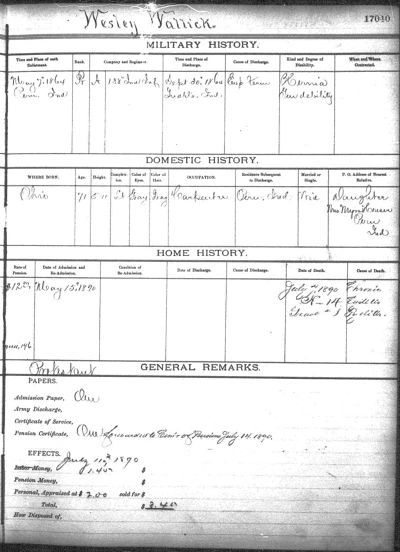 Wesley Warrick
17040
MILITARY HISTORY.
Time and Place of each Enlistment. Rank. Company and Regiment. Time and Place of Discharge. Cause of Discharge. Kind and Degree of Disability. When and Where Contracted.
May 7, 1864 Pt A 138" Ind Inf, Sept 30" 1864 Exp Term Hernia
Peru, Ind Indpls, Ind. Gen debility
DOMESTIC HISTORY.
WHERE BORN. Age. Height. Complexion. Color of Eyes. Color of Hair. OCCUPATION. Residence Subsequent to Discharge. Married or Single. P. O. Address of Nearest Relative.
Ohio 71 5 11 Lt Gray Gray Carpenter Peru, Ind Wid Daughter
Mrs
Peru
Ind
HOME HISTORY.
Rate of Pension. Date of Admission and Re-Admission. Condition of Re-Admission. Date of Discharge. Cause of Discharge. Date of Death. Cause of Death.
$12.00 May 15, 1890 July 1890 Chronic
14
Grave # 1
Protestant
GENERAL REMARKS.
PAPERS.
Admission Paper, One
Army Discharge,
Certificate of Service,
Pension Certificate, One Forwarded to Com'r of Pensions July 14, 1890.
EFFECTS. July 1890
Inter Money, 1.40 $
Pension Money, $
Personal, Appraised at $ 2.00 sold for $
Total, $ 3.40
How Disposed of,